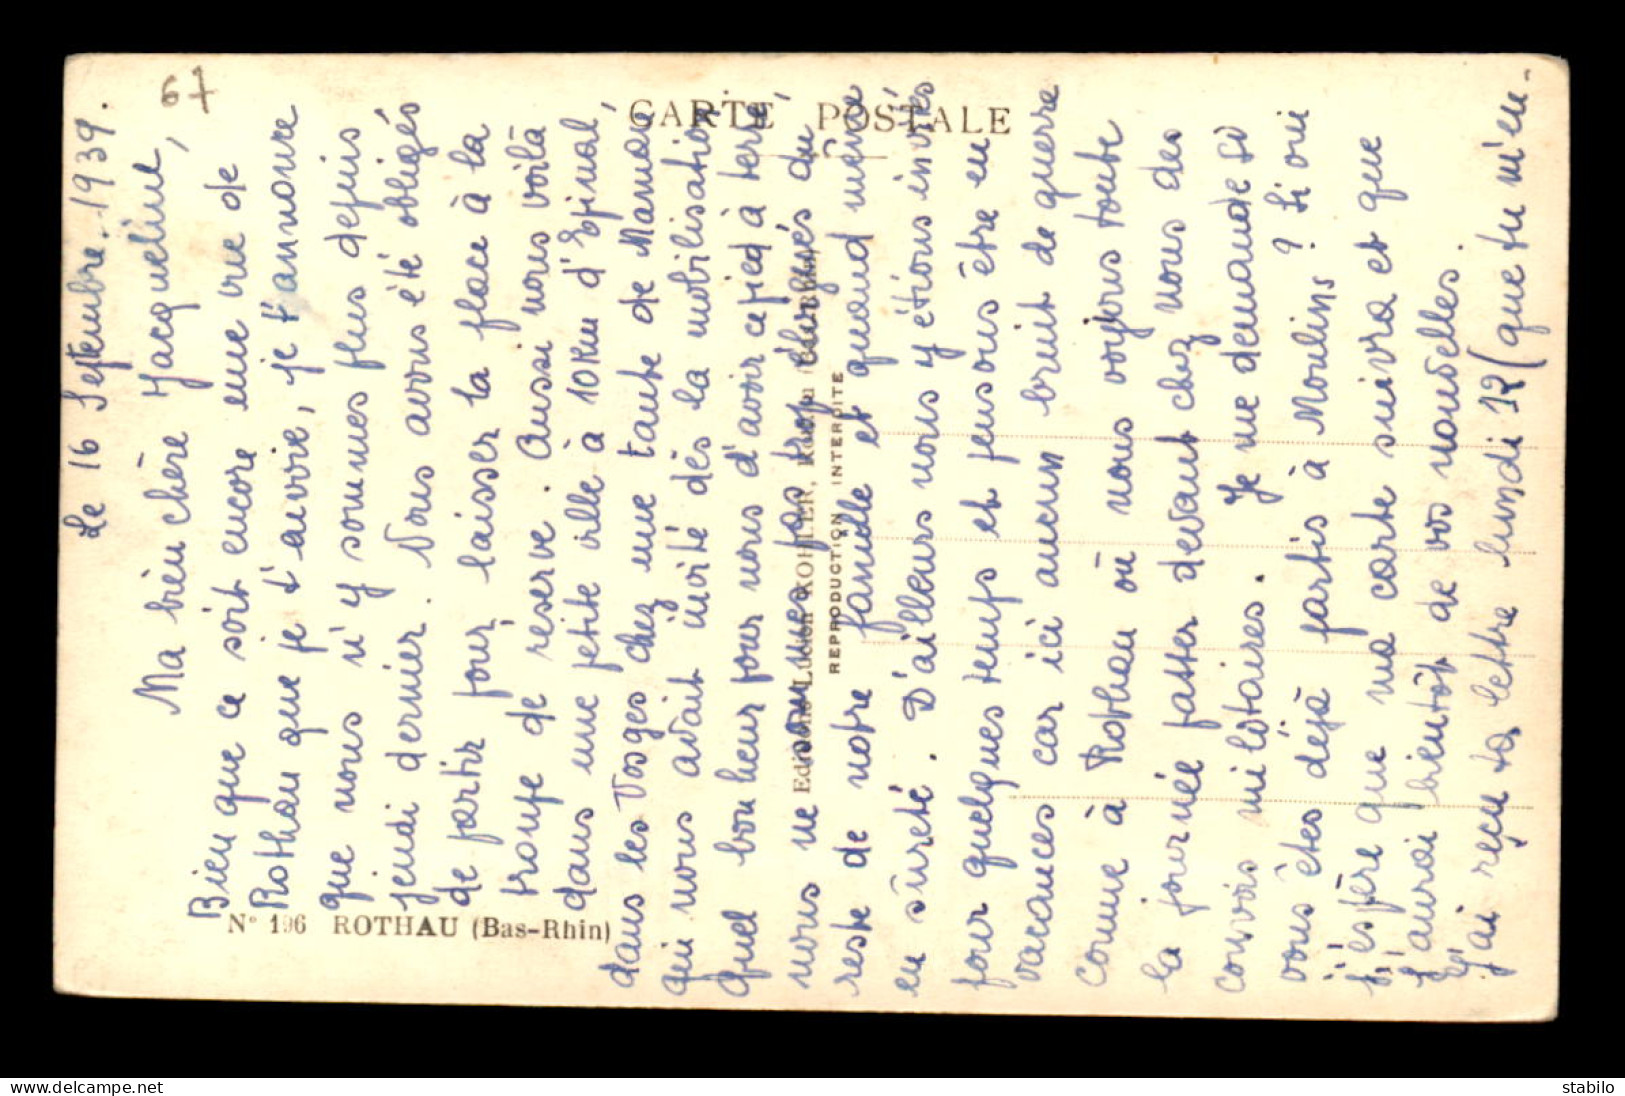 67
CARTE POSTALE
Le 16 Septembre 1939.
Ma bien chère Jacqueline,
Bien que ce soit encore une vue de
Rothau que je t'envoie, je t'annonce
que nous n'y sommes plus depuis
jeudi dernier. Nous avons été obligés
de partir pour laisser la place à la
troupe de réserve. Aussi nous voilà
dans une petite ville à 10 Km d'Epinal,
dans les Vosges chez une tante de Maman
qui nous avait invité dès la mobilisation.
Quel bonheur pour nous d'avoir ce pied à terre,
nous ne sommes pas trop éloignés du
reste de notre famille et quand même
en sûreté. D'ailleurs nous y étions invités
pour quelques temps et pensons être en
vacances car ici aucun bruit de guerre
comme à Rothau où nous voyions toute
la journée passer devant chez nous des
convois militaires. Je me demande si
vous êtes déjà partis à Moulins ? Si oui
j'espère que ma carte suivra et que
j'aurai bientôt de vos nouvelles.
J'ai reçu ta lettre lundi 12 (que tu m'en-
Editions Lucien KOHLER, Rothau (Bas-Rhin)
REPRODUCTION INTERDITE
N° 196 ROTHAU (Bas-Rhin)
www.delcampe.net
stabilo